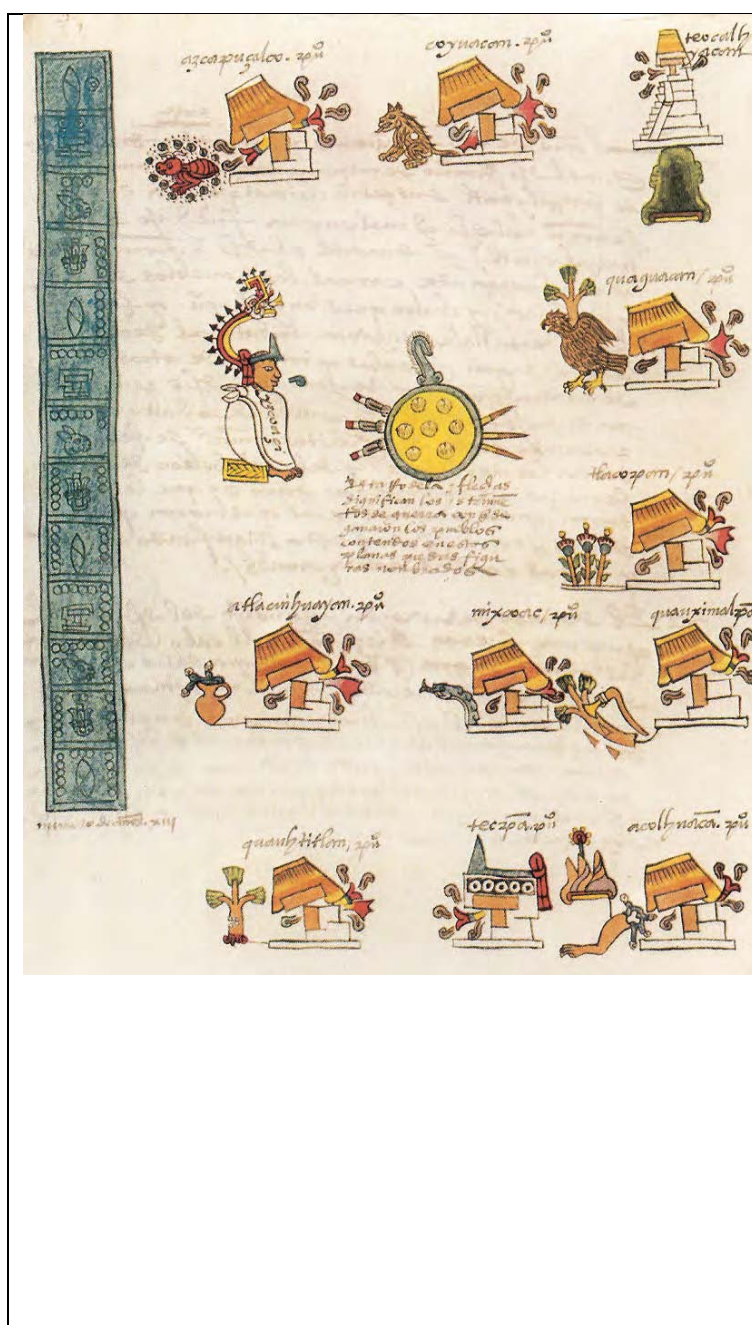 azcapuçalco. pu°
coyuacan. pu°
teocalh
yacan
quaguacan / pu°
ytzcoatzi
tlacopan / pu°
Esta rodela y flechas
significan los ystrume
tos de guerra con q se
ganaron los pueblos
contenidos en estas
planas que sus figu
ras nombrados
atlacuihuayan. pu°
mixcoac / pu°
quauximalpā
numero de años. xiii
quauhtitlan / pu°
tecpā. pu°
acolhuacā. pu°